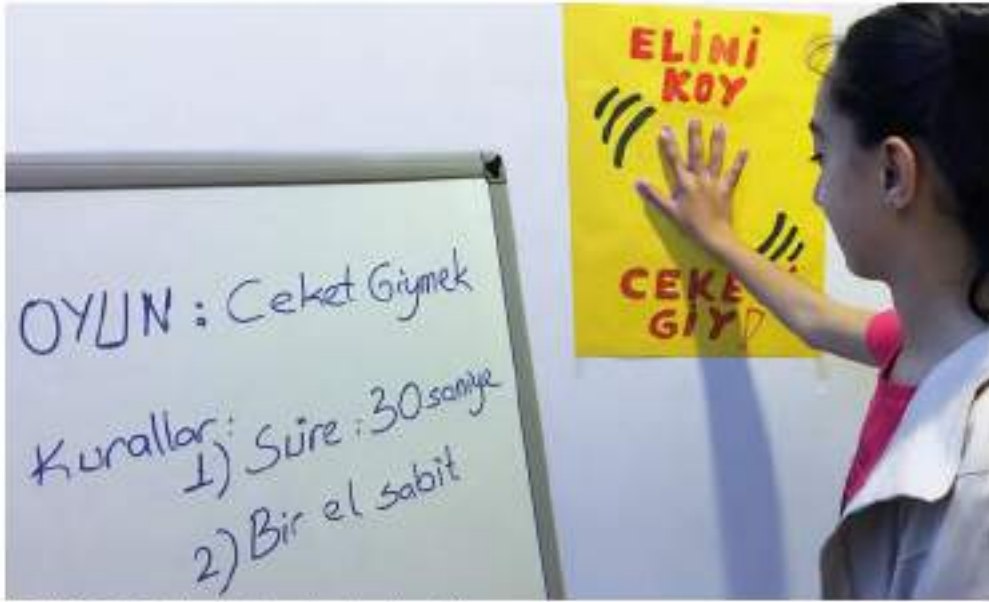 OYUN : Ceket Giymek
Kurallar:
1) Süre : 30 saniye
2) Bir el sabit
ELİNİ
KOY
GİY